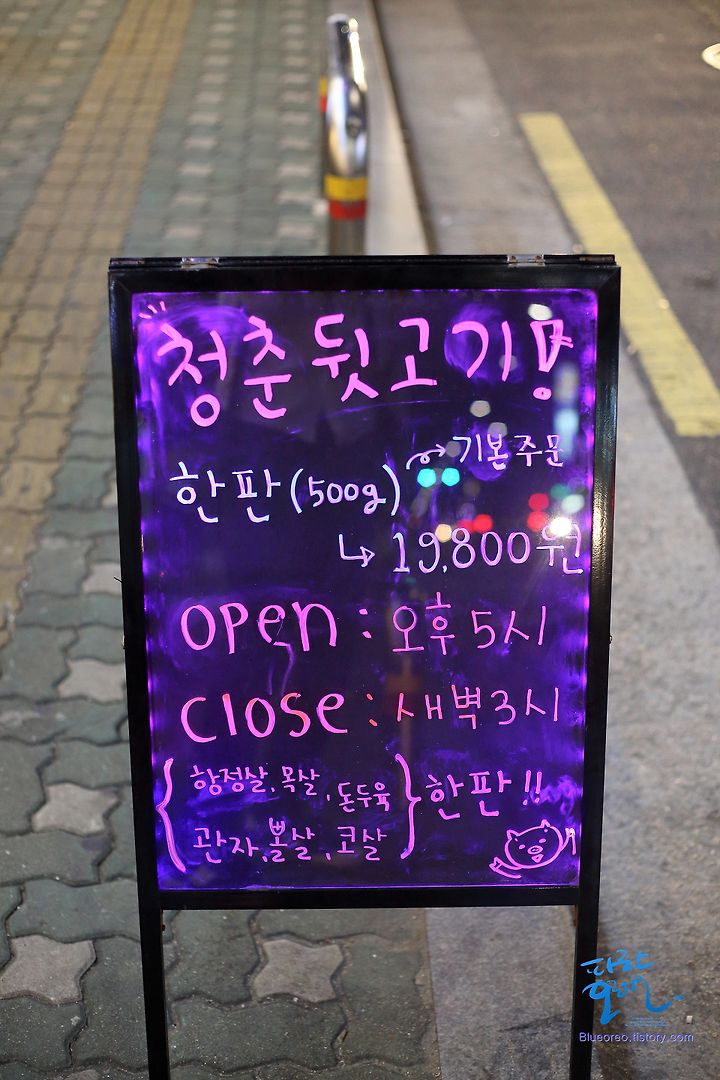 청춘 뒷고기!
한판 (500g) ↝ 기본주문
↳ 19,800원
open : 오후 5시
close : 새벽 3시
{ 항정살, 목살, 돈두육
관자, 볼살, 코살 } 한판!!
파란오레오
Blueoreo.tistory.com